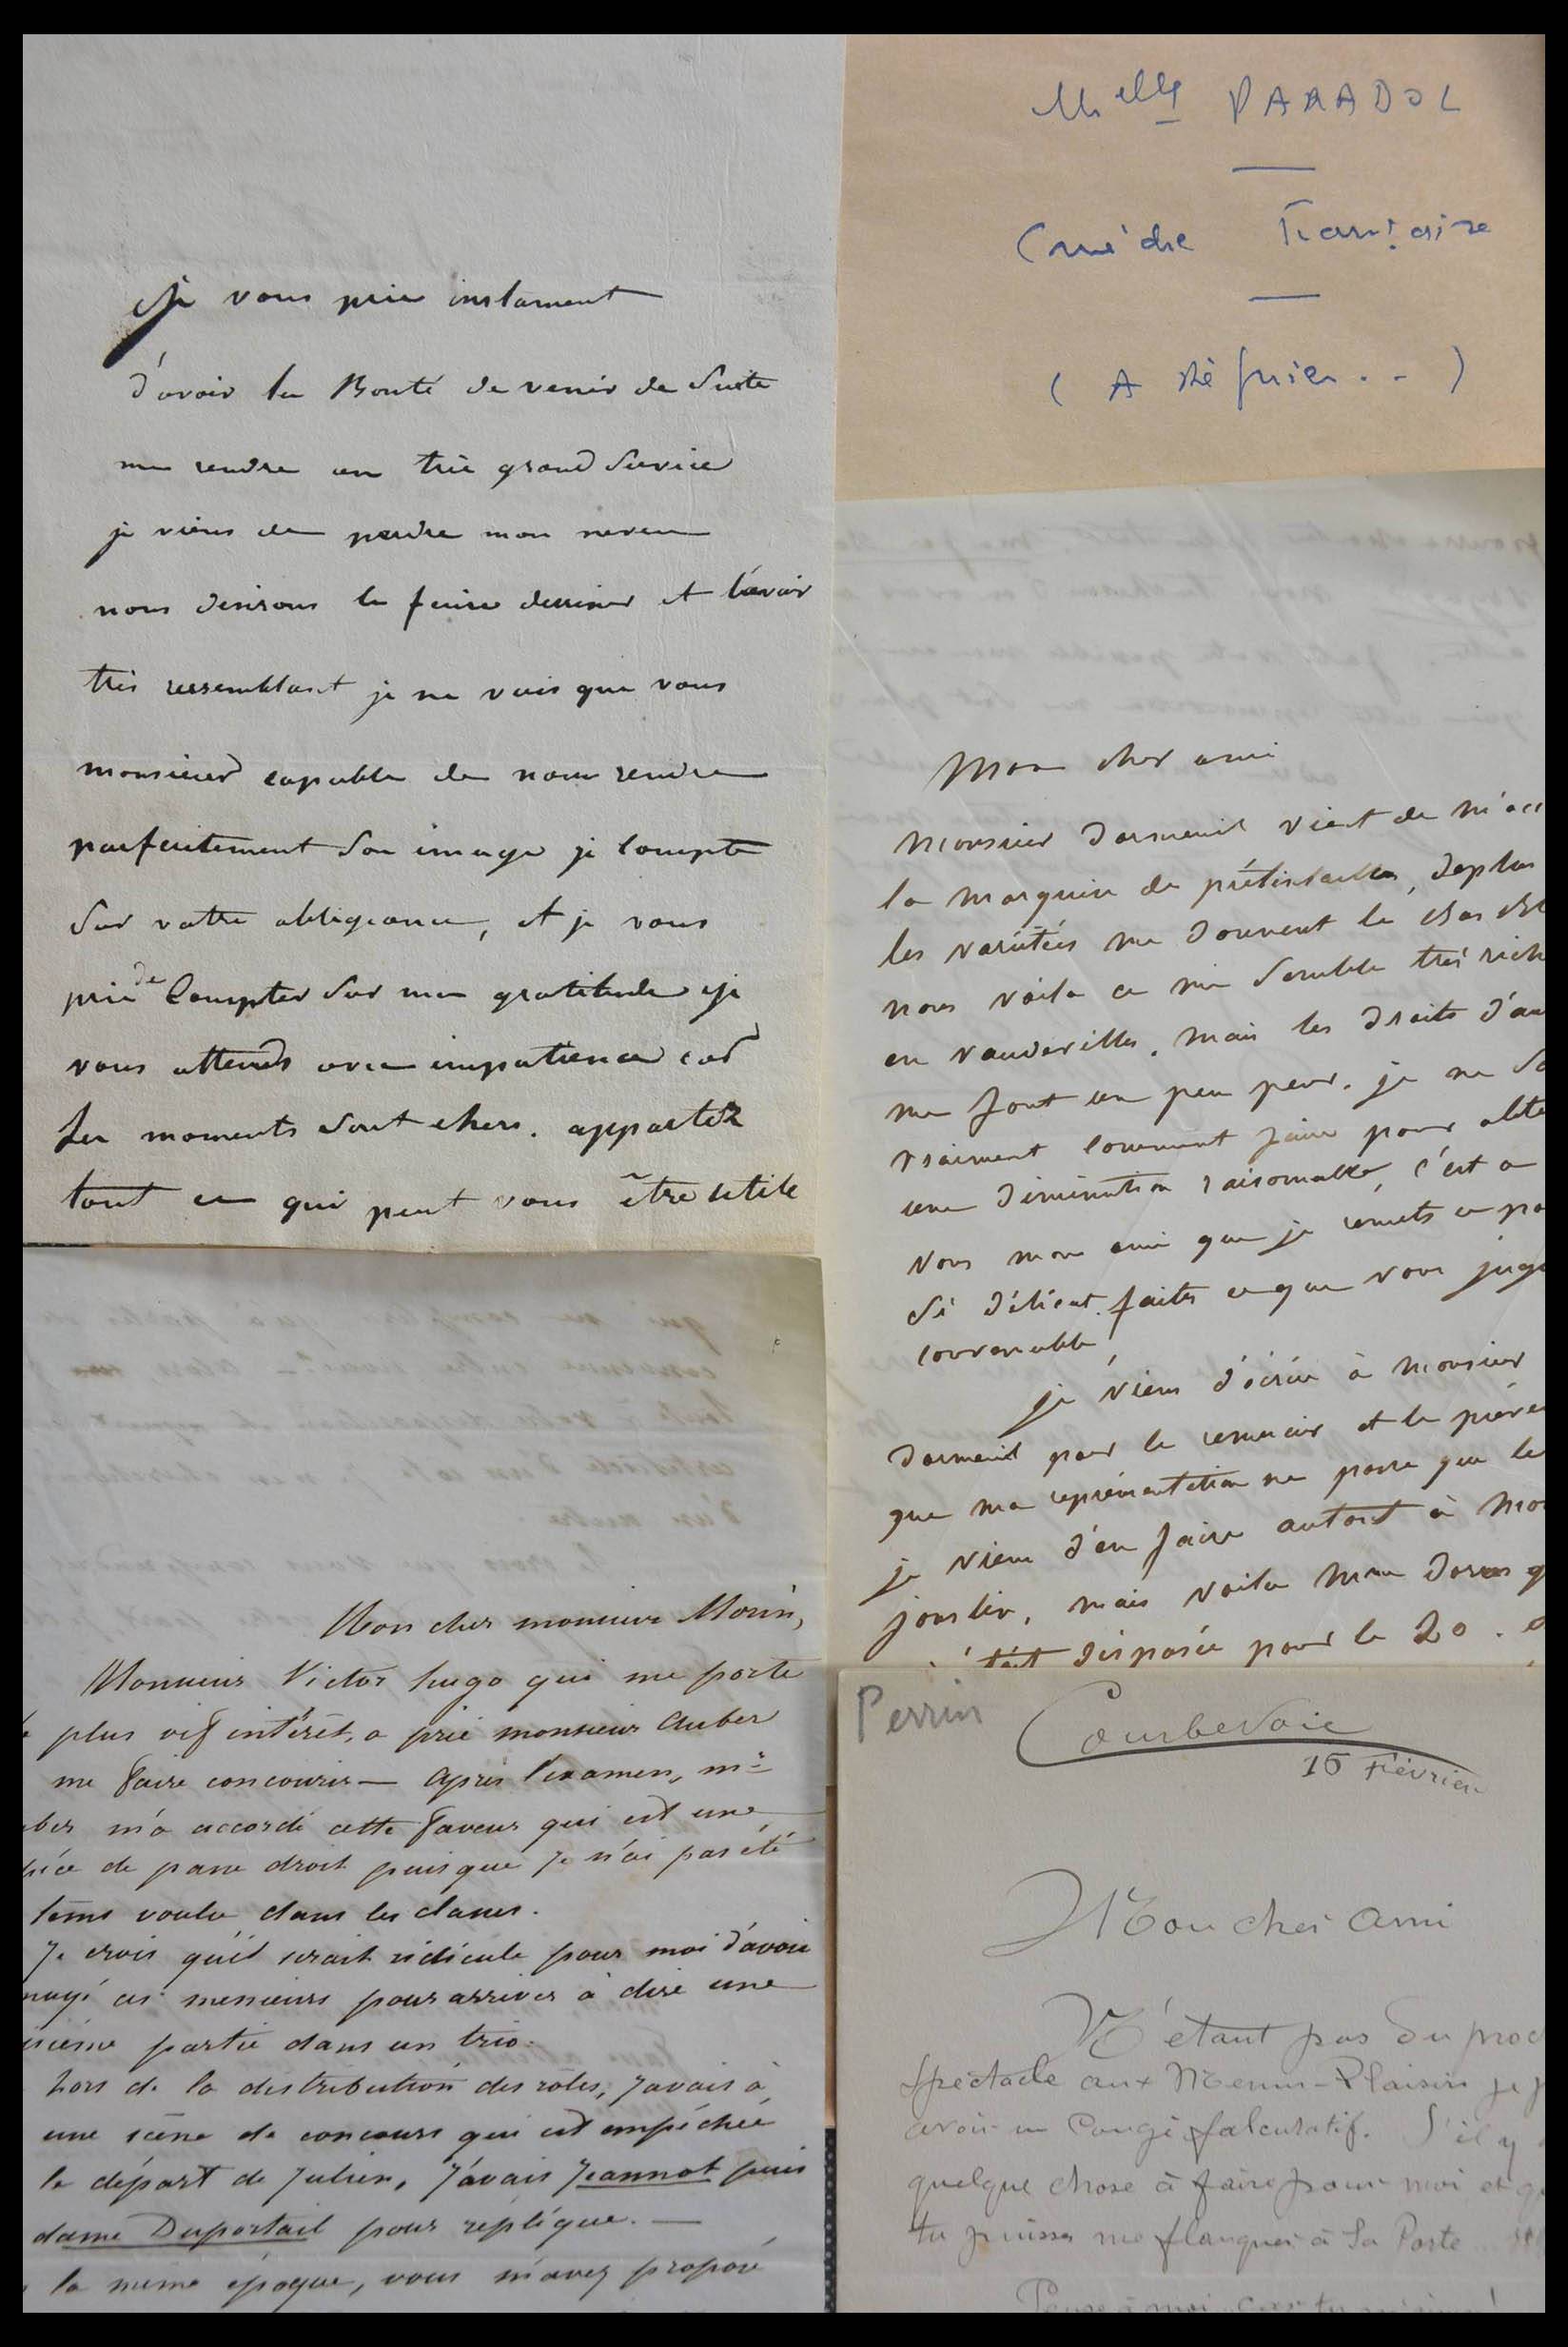 Je vous prie instament
d'avoir la Bonté de venir de Suite
me rendre un très grand Service
je viens de perdre mon neveu
nous desirons le faire dessiner et l'avoir
très ressemblant je ne vois que vous
monsieur capable de nous rendre
parfaitement Son image je Compte
Sur votre obligeance, et je vous
prie de Compter Sur ma gratitude je
vous attends avec impatience car
les moments Sont chers. apportez
tout ce qui peut vous être utile
Mlle PARADOL
Comédie Française
( A Régnier . . )
Mon cher ami
Monsieur Dormeuil vient de m'acc
la Marquise de prétintailles, deplus
les variétées me donnent le
nous voila ce me Semble très rich
en vaudevilles. mais les droits d'au
me font un peu peur. je ne Sa
vraiment Comment faire pour obte
une diminution raisonnable, c'est a
vous mon ami que je remets ce po
Si délicat. faites ce que vous juge
convenable
je viens d'écrire à Monsieur
Dormeuil pour le remercier et le préve
que ma représentation ne passe que le
je viens d'en faire autant à Mon
jouslin, mais voila Mme Dorus q
était disposée pour le 20.
Mon cher monsieur Morin,
Monsieur Victor hugo qui me porte
le plus vif intérêt, a prié monsieur Auber
me faire concourir — après l'examen, mr
ber m'a accordé cette faveur qui est une
pièce de passe droit puisque je n'ai pas été
tems voulu dans les classes.
Je crois qu'il serait ridicule pour moi d'avoir
nuyé ces messieurs pour arriver à dire une
isième partie dans un trio.
hors de la distribution des rôles, j'avais à
une scène de concours qui est empêchée
le départ de Julien, j'avais Jeannot puis
dame Duportail pour réplique. —
la même époque, vous m'avez proposé
Perrin
Courbevoie
15 Février
Mon cher ami
N'étant pas du proc
Spectacle aux Menus-Plaisirs je p
avoir un Congé falcutatif. S'il y
quelque chose à faire pour moi et q
tu puisses me flanquer à la Porte
Pense à moi car tu